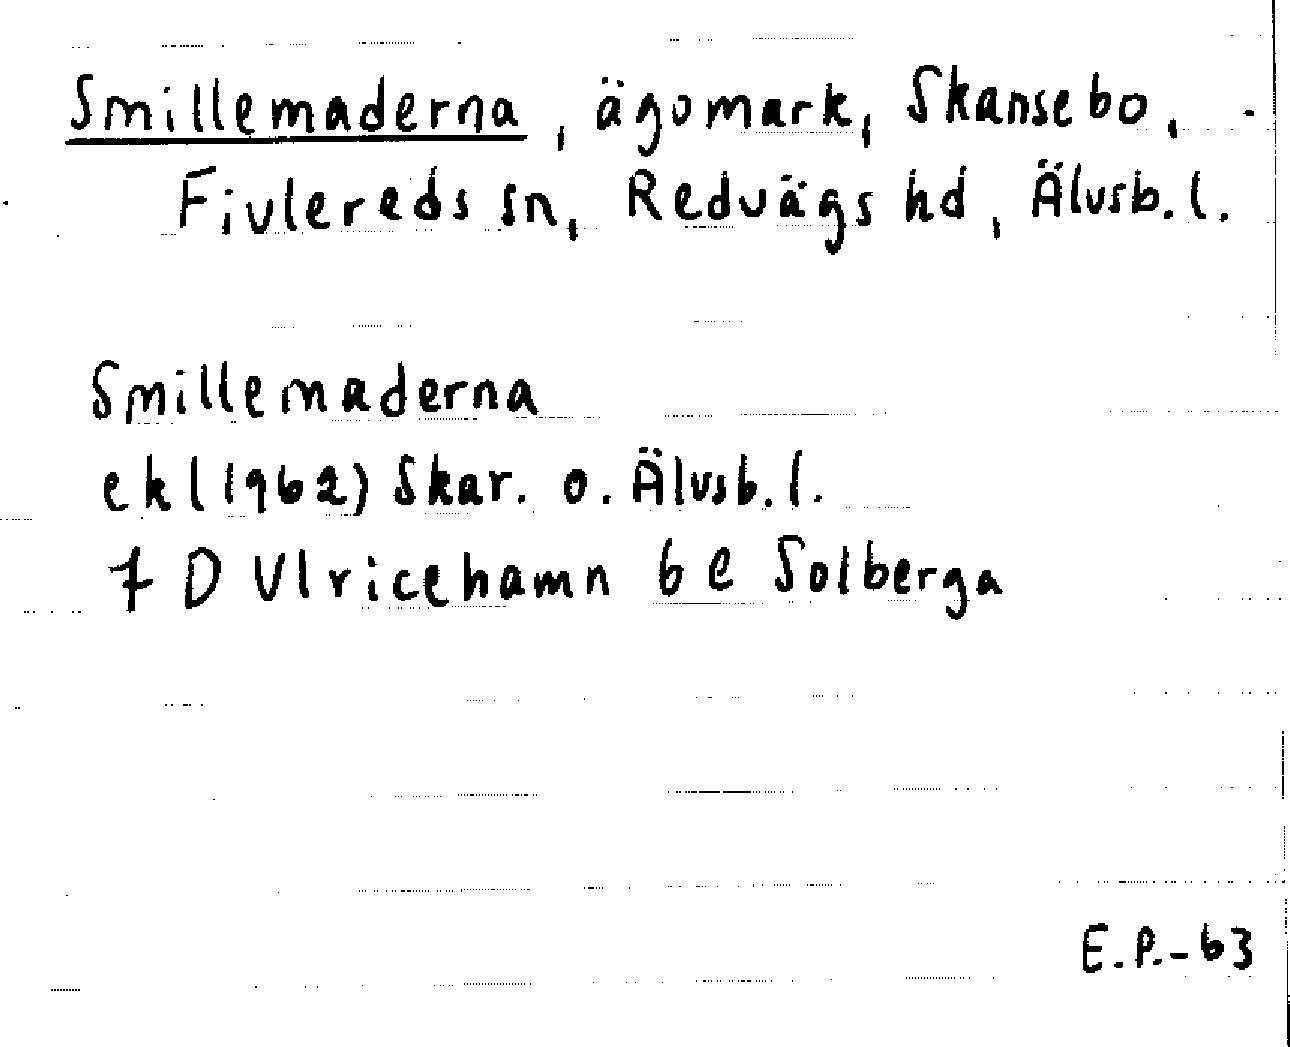 Smillemaderna, ägomark, Skansebo,
Fivlereds sn, Redvägs hd, Älvsb. l.
Smillemaderna
ekl (1962) Skar. o. Älvsb. l.
7 D Ulricehamn 6 e Solberga
E.P.-63